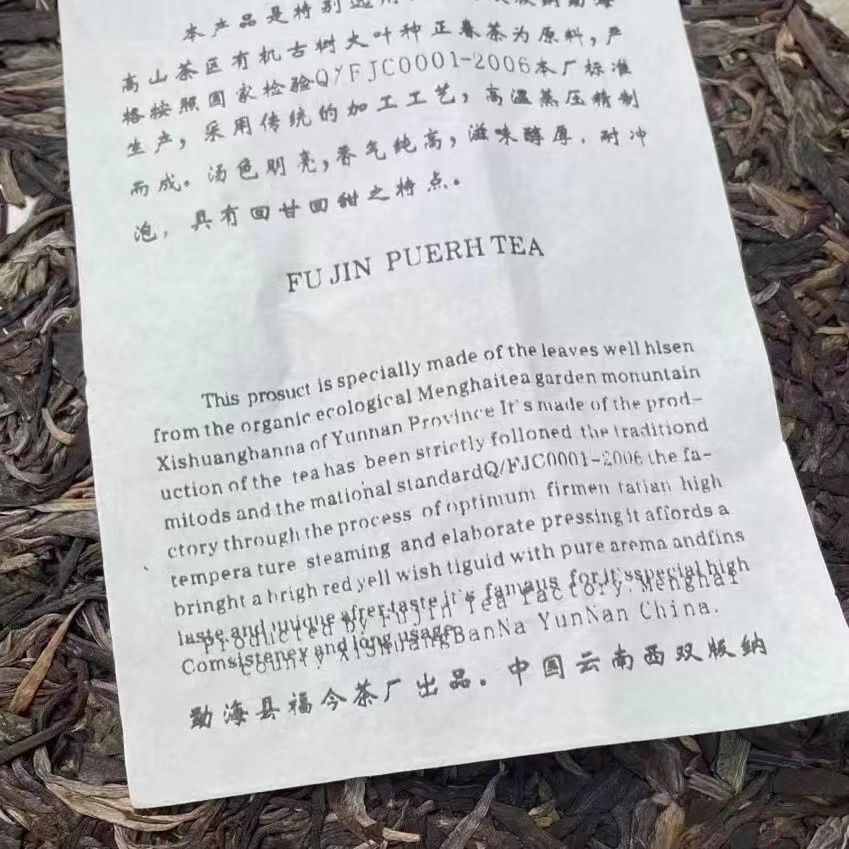 本产品是特别选用
高山茶区有机古树大叶种正春茶为原料，严
格按照国家检验Q/FJC0001-2006本厂标准
生产，采用传统的加工工艺，高温蒸压精制
而成。汤色明亮，香气纯高，滋味醇厚，耐冲
泡，具有回甘回甜之特点。
FU JIN PUERH TEA
This prosuct is specially made of the leaves well hlsen
from the organic ecological Menghaitea garden monuntain
Xishuanghanna of Yunnan Province It's made of the prod-
uction of the tea has been strictly folloned the traditiond
mitods and the mational standardQ/FJC0001-2006 the fa-
ctory through the process of optimum firmen tatian high
tempera ture steaming and elaborate pressing it affords a
bringht a brigh red yell wish tiguid with pure arema andfins
taste and unique after taste it's famaus for it'sspecial high
Producted By FuJin Tea Factory. Menghai
Comsistency and long usage
County XiShuangBanNa YunNan China.
勐海县福今茶厂出品。中国云南西双版纳